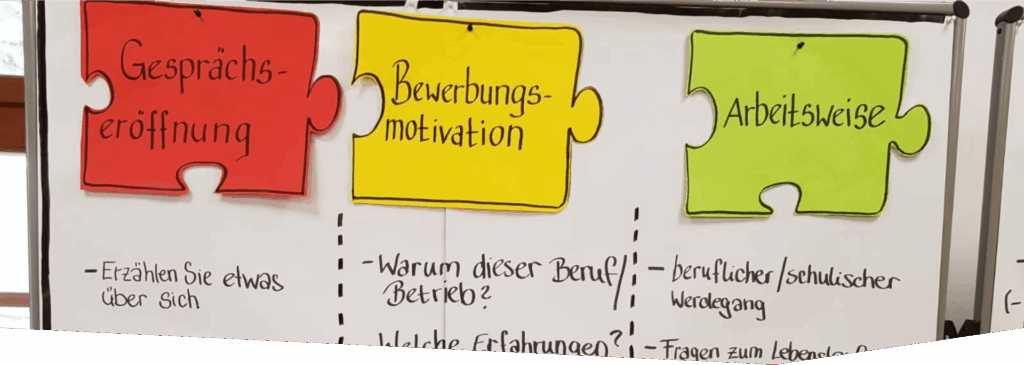 Gesprächs-
eröffnung
Bewerbungs-
motivation
Arbeitsweise
- Erzählen Sie etwas
über sich
- Warum dieser Beruf/
Betrieb?
Welche Erfahrungen?
- beruflicher/schulischer
Werdegang
- Fragen zum